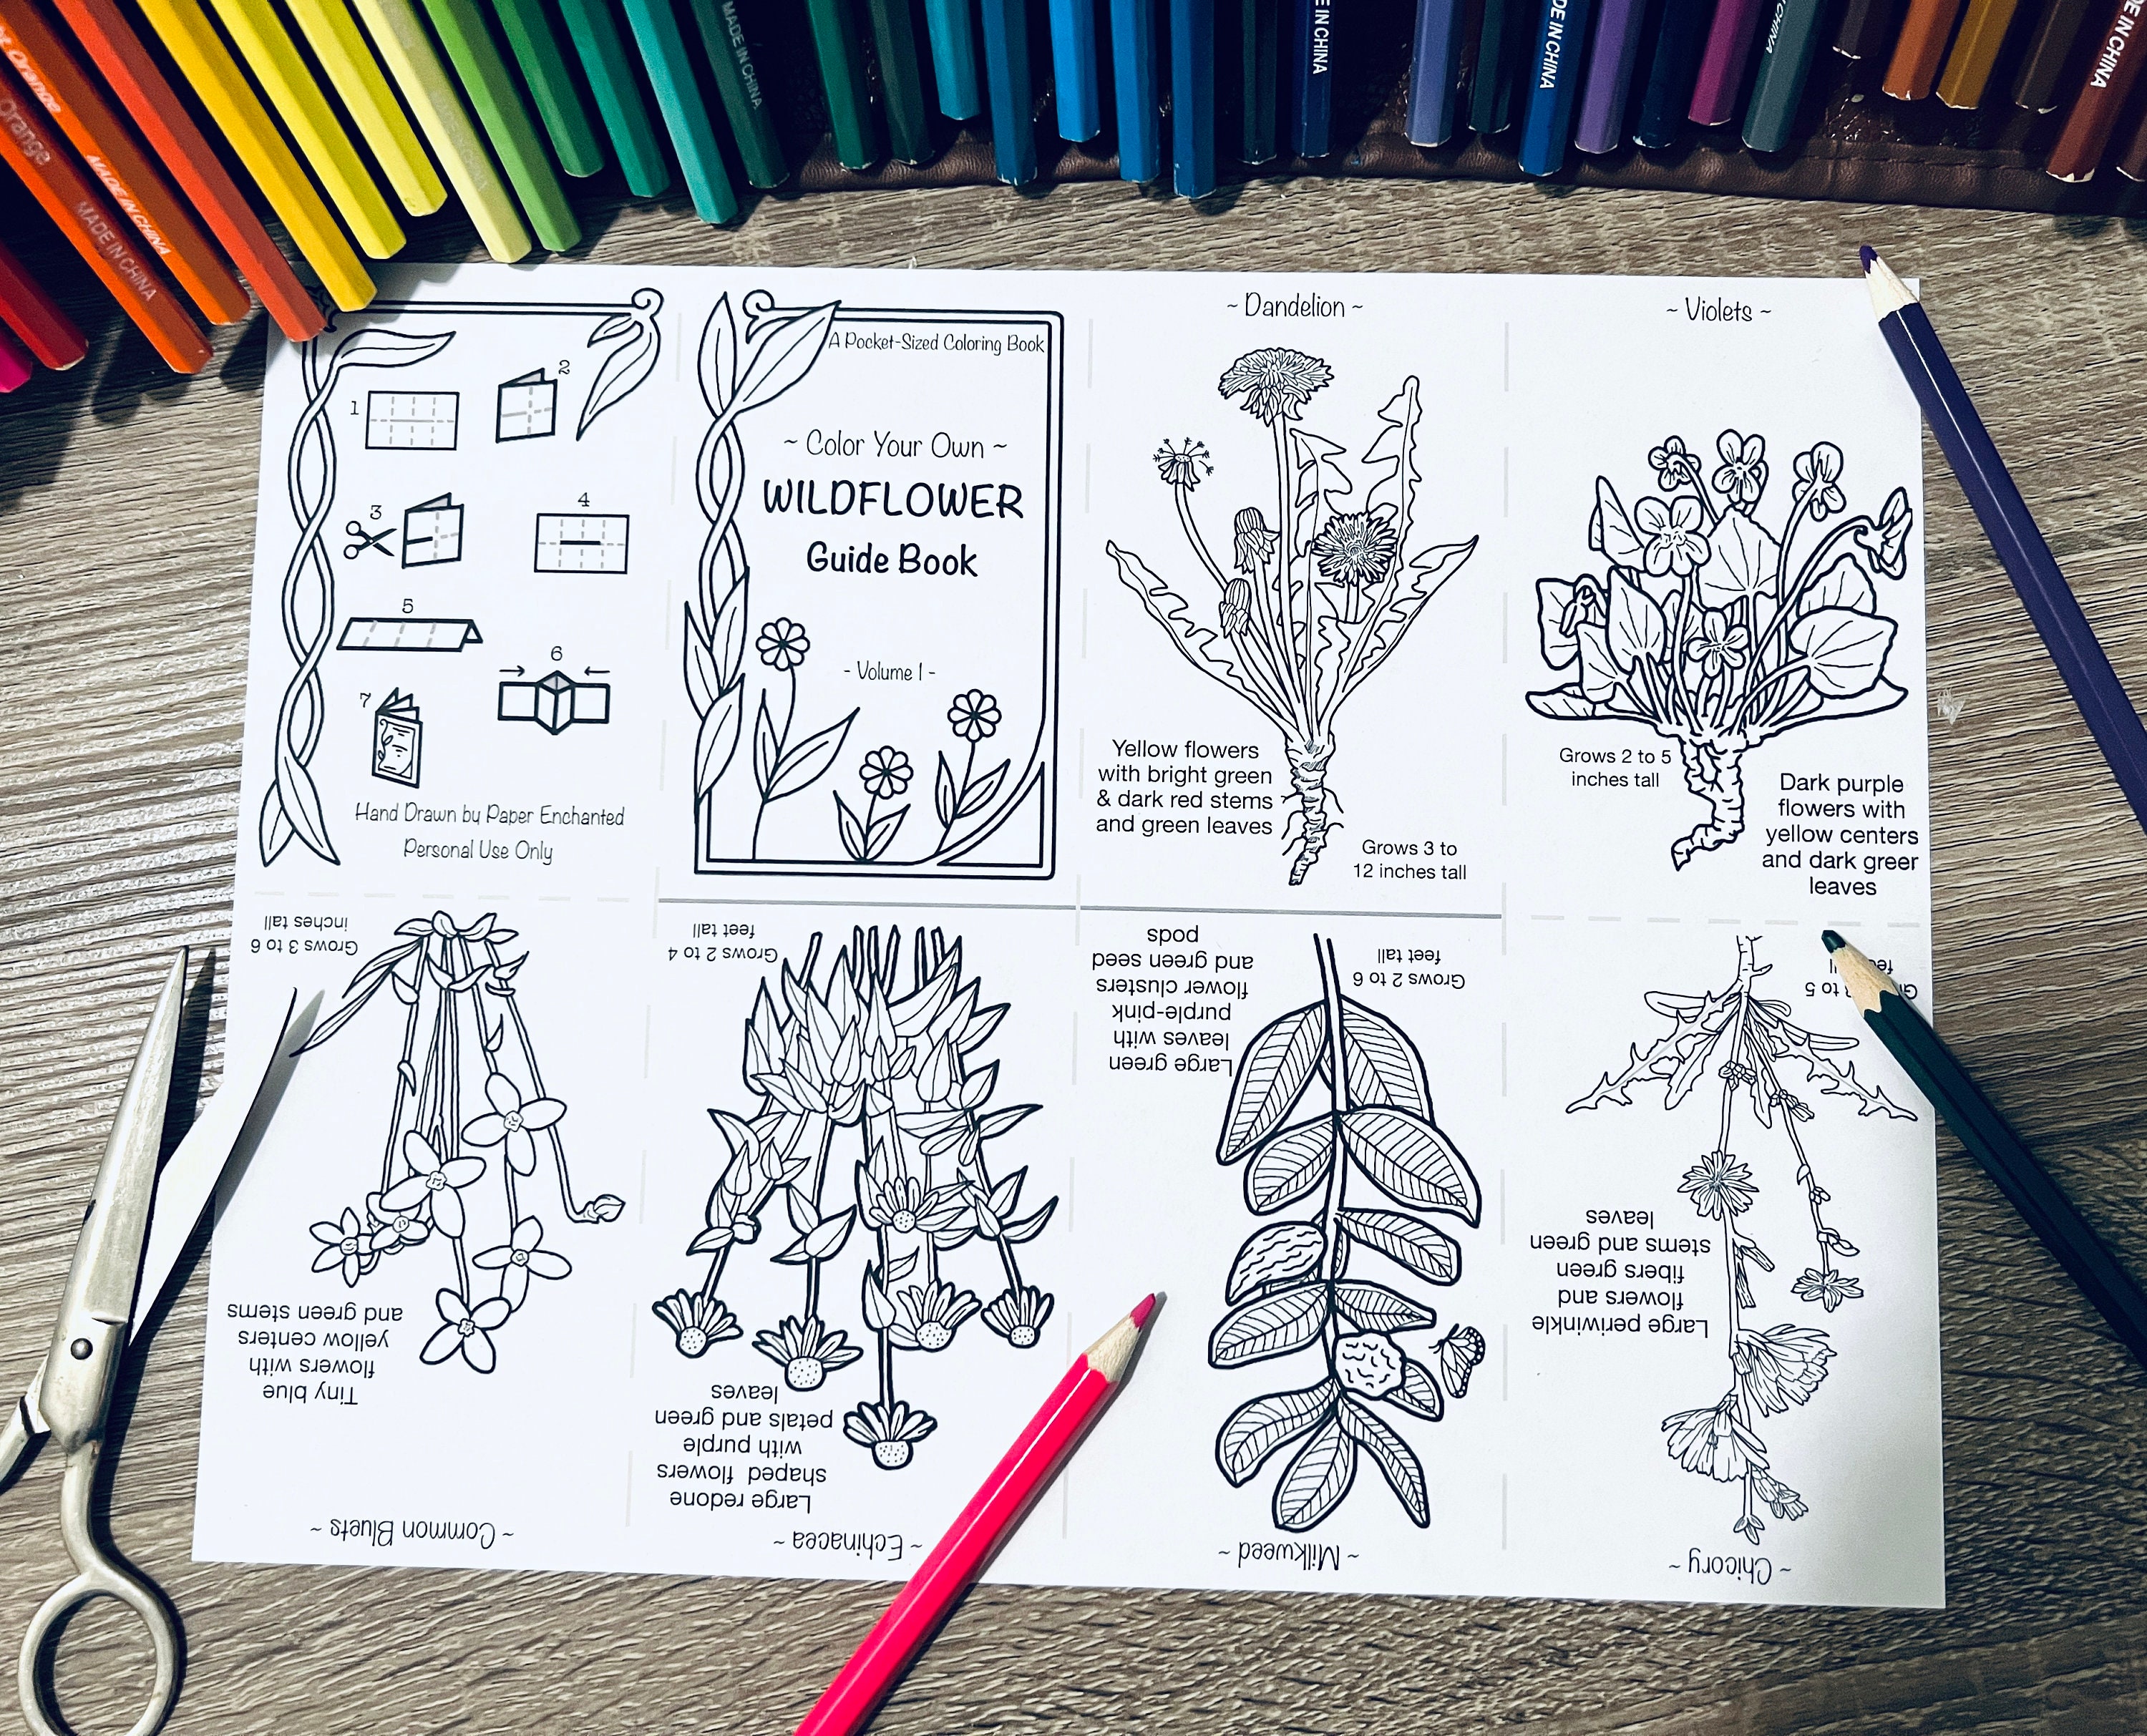 Orange
Orange
MADE IN CHINA
MADE IN CHINA
MADE IN CHINA
E IN CHINA
DE IN CHINA
CHINA
DE IN CHINA
1
2
3
4
5
6
7
Hand Drawn by Paper Enchanted
Personal Use Only
A Pocket-Sized Coloring Book
~ Color Your Own ~
WILDFLOWER
Guide Book
- Volume 1 -
~ Dandelion ~
Yellow flowers
with bright green
& dark red stems
and green leaves
Grows 3 to
12 inches tall
~ Violets ~
Grows 2 to 5
inches tall
Dark purple
flowers with
yellow centers
and dark greer
leaves
~ Chicory ~
Large periwinkle
flowers and
fibers green
stems and green
leaves
to 5
~ Milkweed ~
Large green
leaves with
purple-pink
flower clusters
and green seed
pods
Grows 2 to 6
feet tall
~ Echinacea ~
Large redone
shaped flowers
with purple
petals and green
leaves
Grows 2 to 4
feet tall
~ Common Bluets ~
Tiny blue
flowers with
yellow centers
and green stems
Grows 3 to 6
inches tall